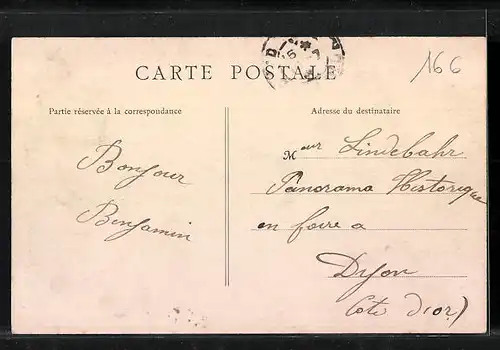 166
CARTE POSTALE
Partie réservée à la correspondance
Adresse du destinataire
Bonjour
Benjamin
Mʳ Lindebahr
Panorama Historique
en foire a
Dijon
Cote d'or)